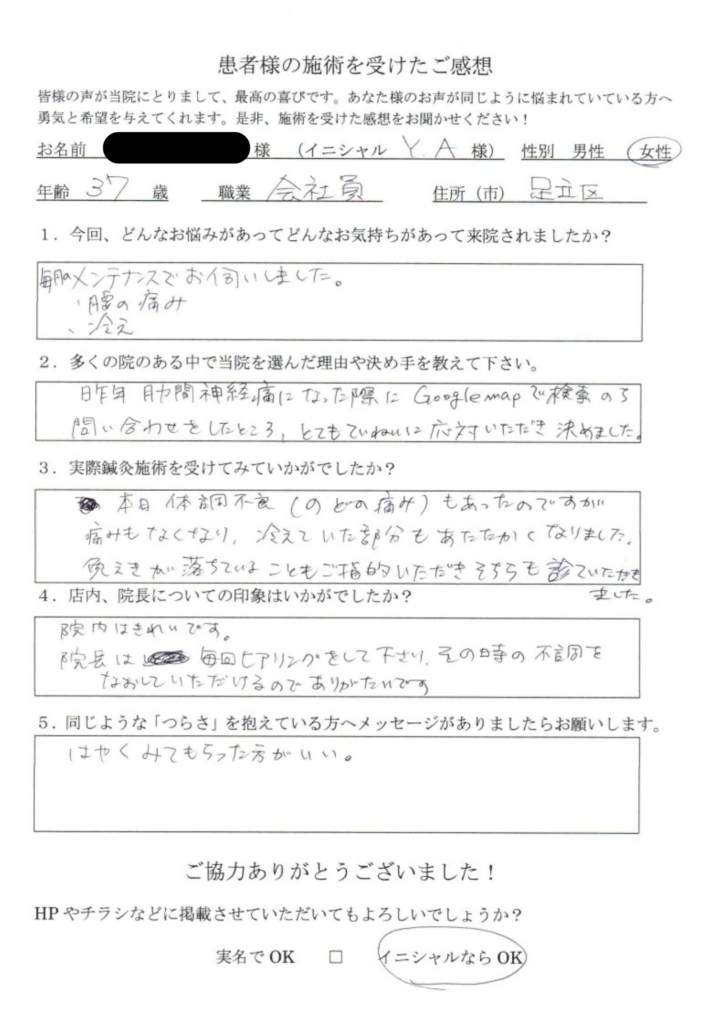 患者様の施術を受けたご感想
皆様の声が当院にとりまして、最高の喜びです。あなた様のお声が同じように悩まれていている方へ
勇気と希望を与えてくれます。是非、施術を受けた感想をお聞かせください！
お名前 様 （イニシャル Y.A 様） 性別 男性 女性
年齢 37 歳 職業 会社員 住所（市） 足立区
１．今回、どんなお悩みがあってどんなお気持ちがあって来院されましたか？
毎月のメンテナンスでお伺いしました。
、腰の痛み
、冷え
２．多くの院のある中で当院を選んだ理由や決め手を教えて下さい。
昨年 肋間神経痛になった際に Googlemapで検索のち
問い合わせをしたところ、とてもていねいに応対いただき決めました。
３．実際鍼灸施術を受けてみていかがでしたか？
本日 体調不良（のどの痛み）もあったのですが
痛みもなくなり、冷えていた部分もあたたかくなりました。
免えきが落ちていることもご指的いただきそちらも診ていただき
ました。
４．店内、院長についての印象はいかがでしたか？
院内はきれいです。
院長は 毎回ヒアリングをして下さり、その時の不調を
なおしていただけるのでありがたいです
５．同じような「つらさ」を抱えている方へメッセージがありましたらお願いします。
はやくみてもらった方がいい。
ご協力ありがとうございました！
HPやチラシなどに掲載させていただいてもよろしいでしょうか？
実名でOK □ イニシャルならOK